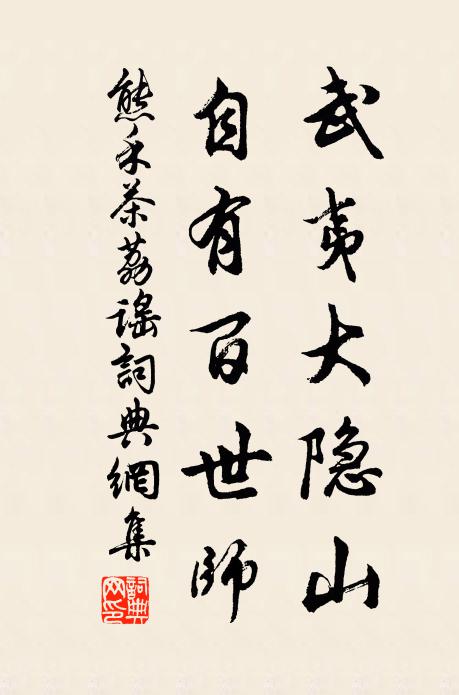 武夷大隐山
自有百世師
熊禾茶荔謠詞典網集
詞典网印